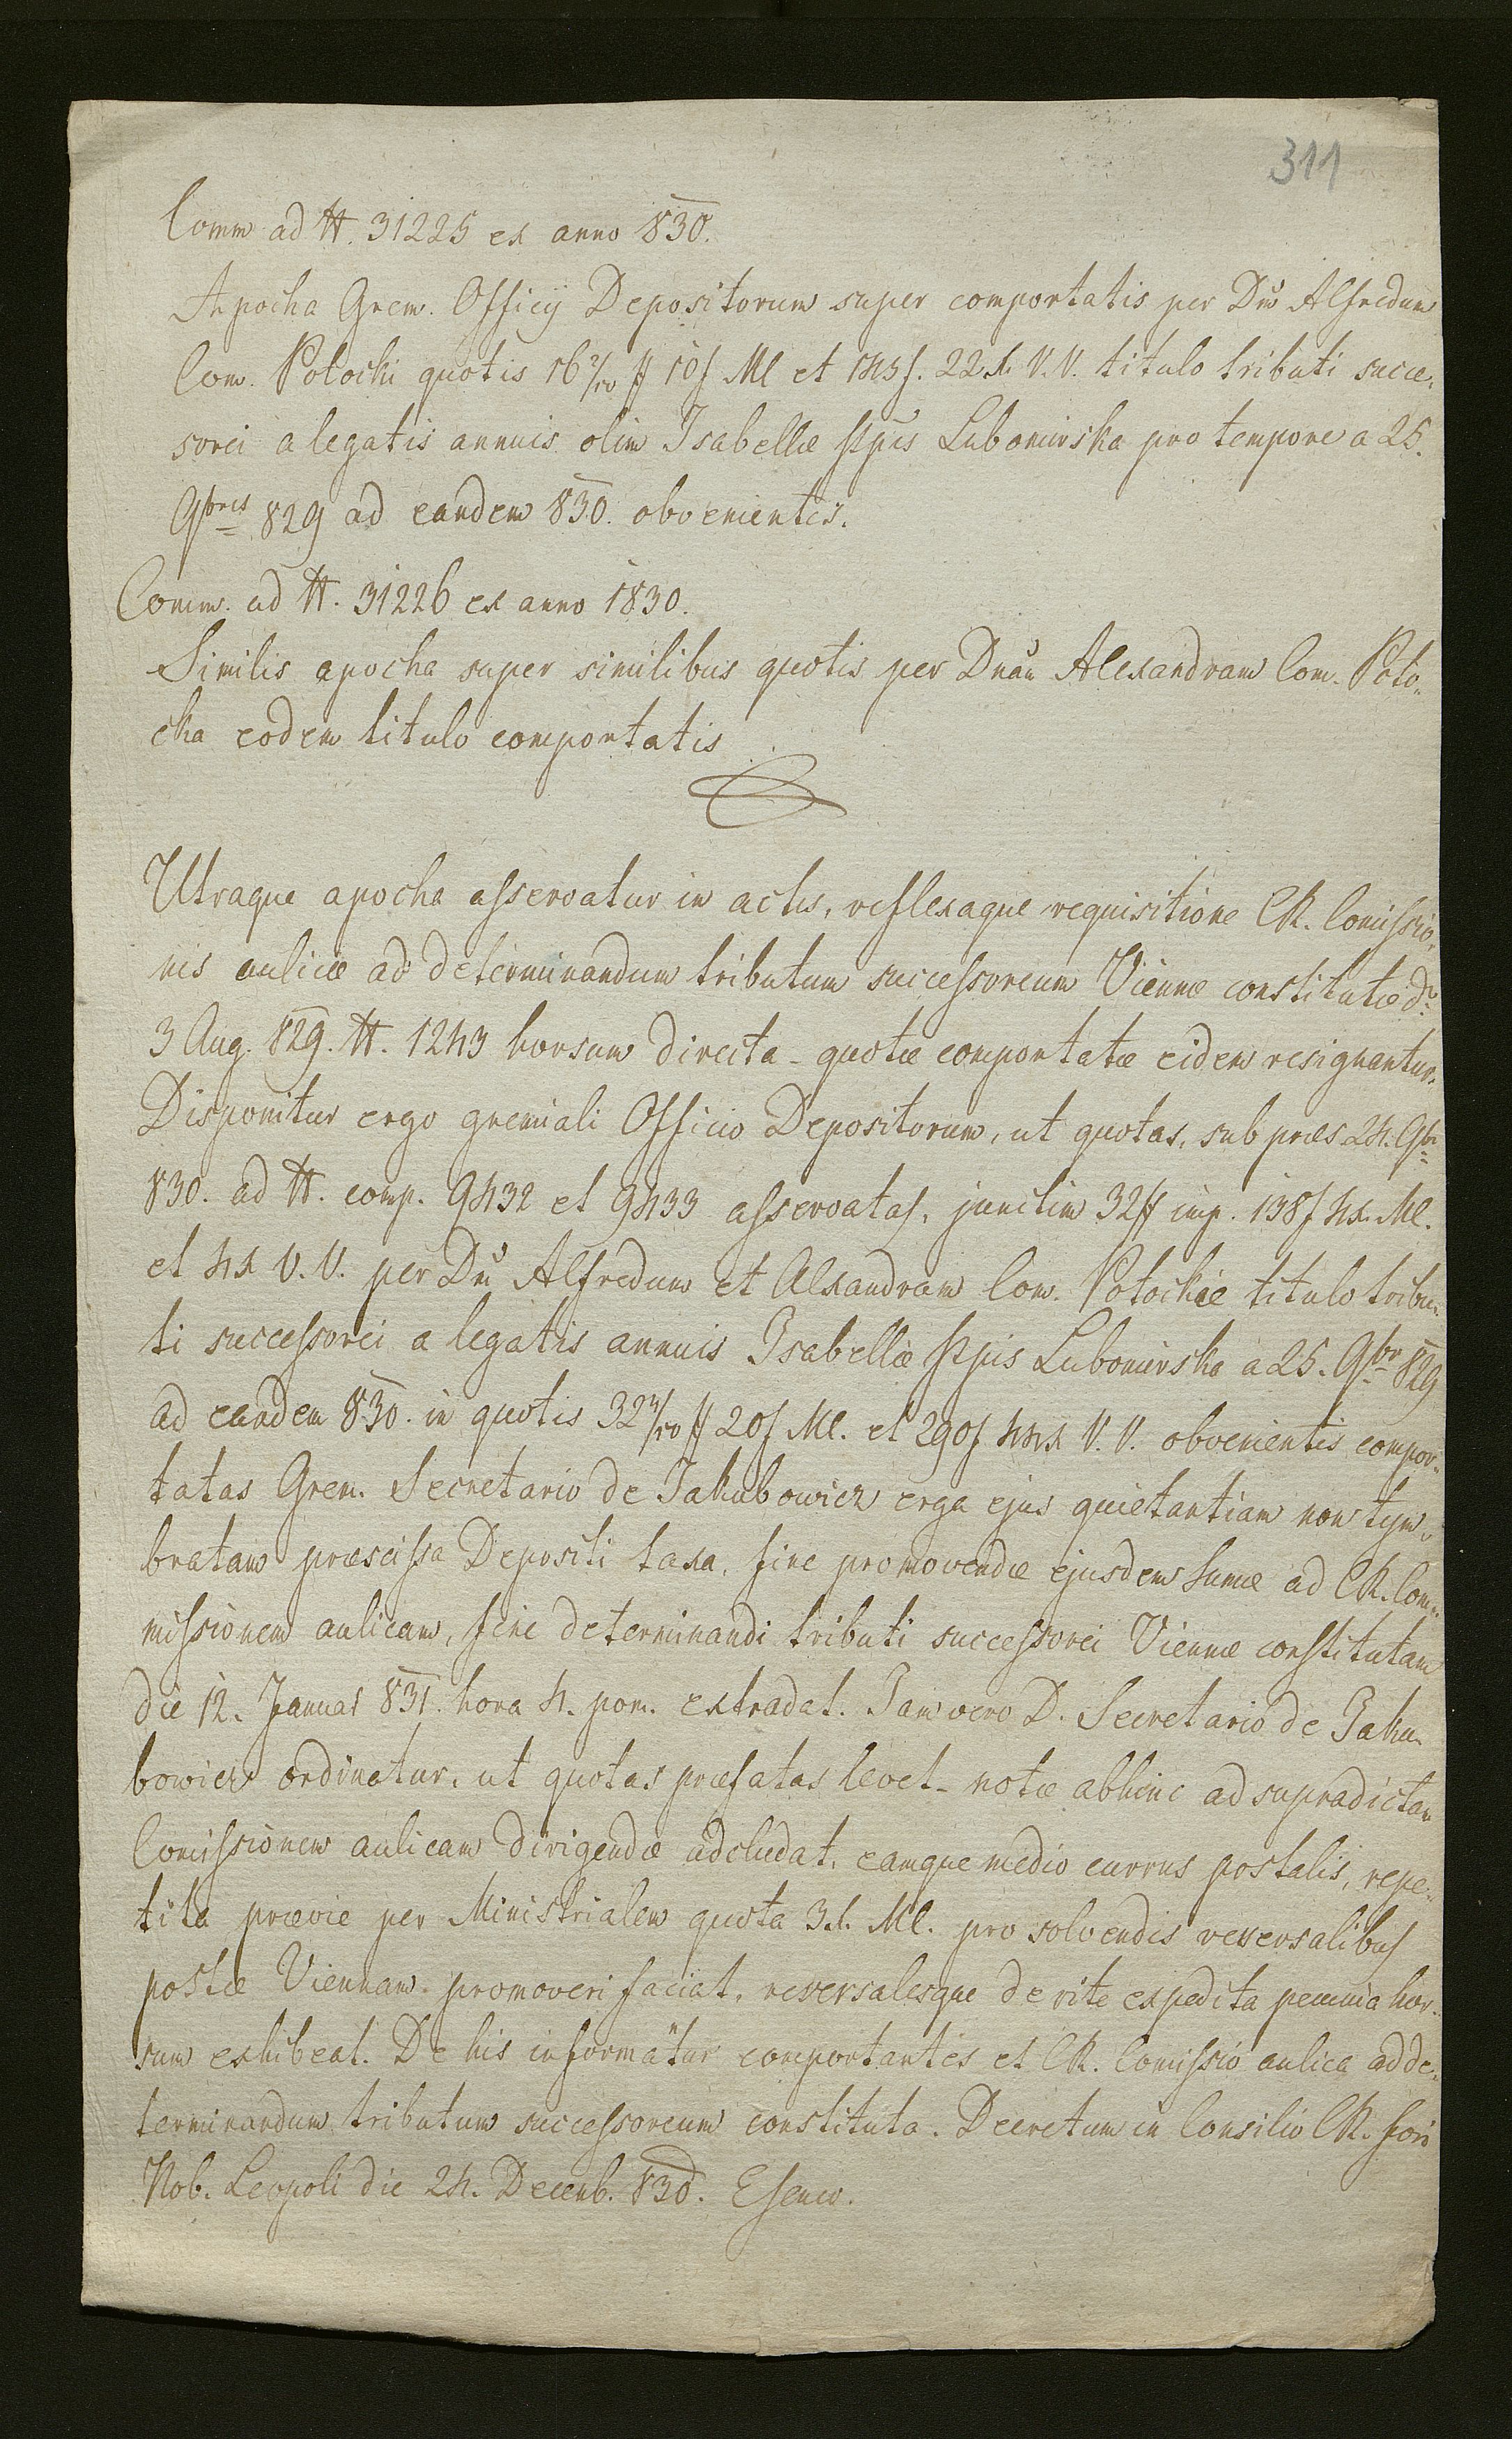 311
Comm ad N. 31225 ex anno 830.
Apocha Grem. Officij Depositorum super comportatis per Dnū Alfredum
Com. Potocki quotis 16 2/10 # 10f MC et 145f. 22 x. V.V. titulo tributi succes„
sorei a legatis annuis olim Isabellæ Ppis Lubomirska pro tempore a 25.
9bris 829 ad eandem 830. obvenientis.
Comm. ad N. 31226 ex anno 1830.
Similis apocha super similibus quotis per Dnāu Alexandram Com. Poto„
cka eodem titulo comportatis
Utraque apocha asservatur in actis, reflexaque requisitione CR. Comissio„
nis aulicæ ad determinandum tributum successoreum Viennæ constitutæ dº
3 Aug. 829. N. 1243 horsum directa – quotæ comportatæ eidem resignantur.
Disponitur ergo gremiali Officio Depositorum, ut quotas, sub præs. 24. 9br
830. ad N. comp. 9432 et 9433 asservatas, junctim 32# imp. 138f 4x. MC.
et 4x V.V. per Dnū Alfredum et Alexandram Com. Potockie titulo tribu„
ti successorei a legatis annuis Isabellæ Ppis Lubomirska a 25. 9br 829
ad eandem 830. in quotis 32 4/10 # 20f MC. et 290f 44x V.V. obvenientis compor„
tatas Grem. Secretario de Jakubowicz erga ejus quietantiam non tym„
bratam præscissa Depositi taxa, fine promovendæ ejusdem sumæ ad CR. Com„
missionem aulicam, fine determinandi tributi successorei Viennæ constitutam
die 12. Januar 831. hora 4. pom. extradat. Jam vero D. Secretario de Jaku„
bowicz ordinatur, ut quotas præfatas levet – notæ abhinc ad supradictam
Comissionem aulicam dirigendæ adcludat, eamque medio currus postalis, repe„
tita prævie per Ministrialem quota 3x. MC. pro solvendis reversalibus
postæ Viennam promoveri faciat, reversalesque de rite expedita pecunia hor„
sum exhibeat. De his informātur comportantes et CR. Comissio aulica ad de„
terminandum tributum successoreum constituta. Decretum in Consilio CR. fori
Nob. Leopoli die 24. Decemb. 830.